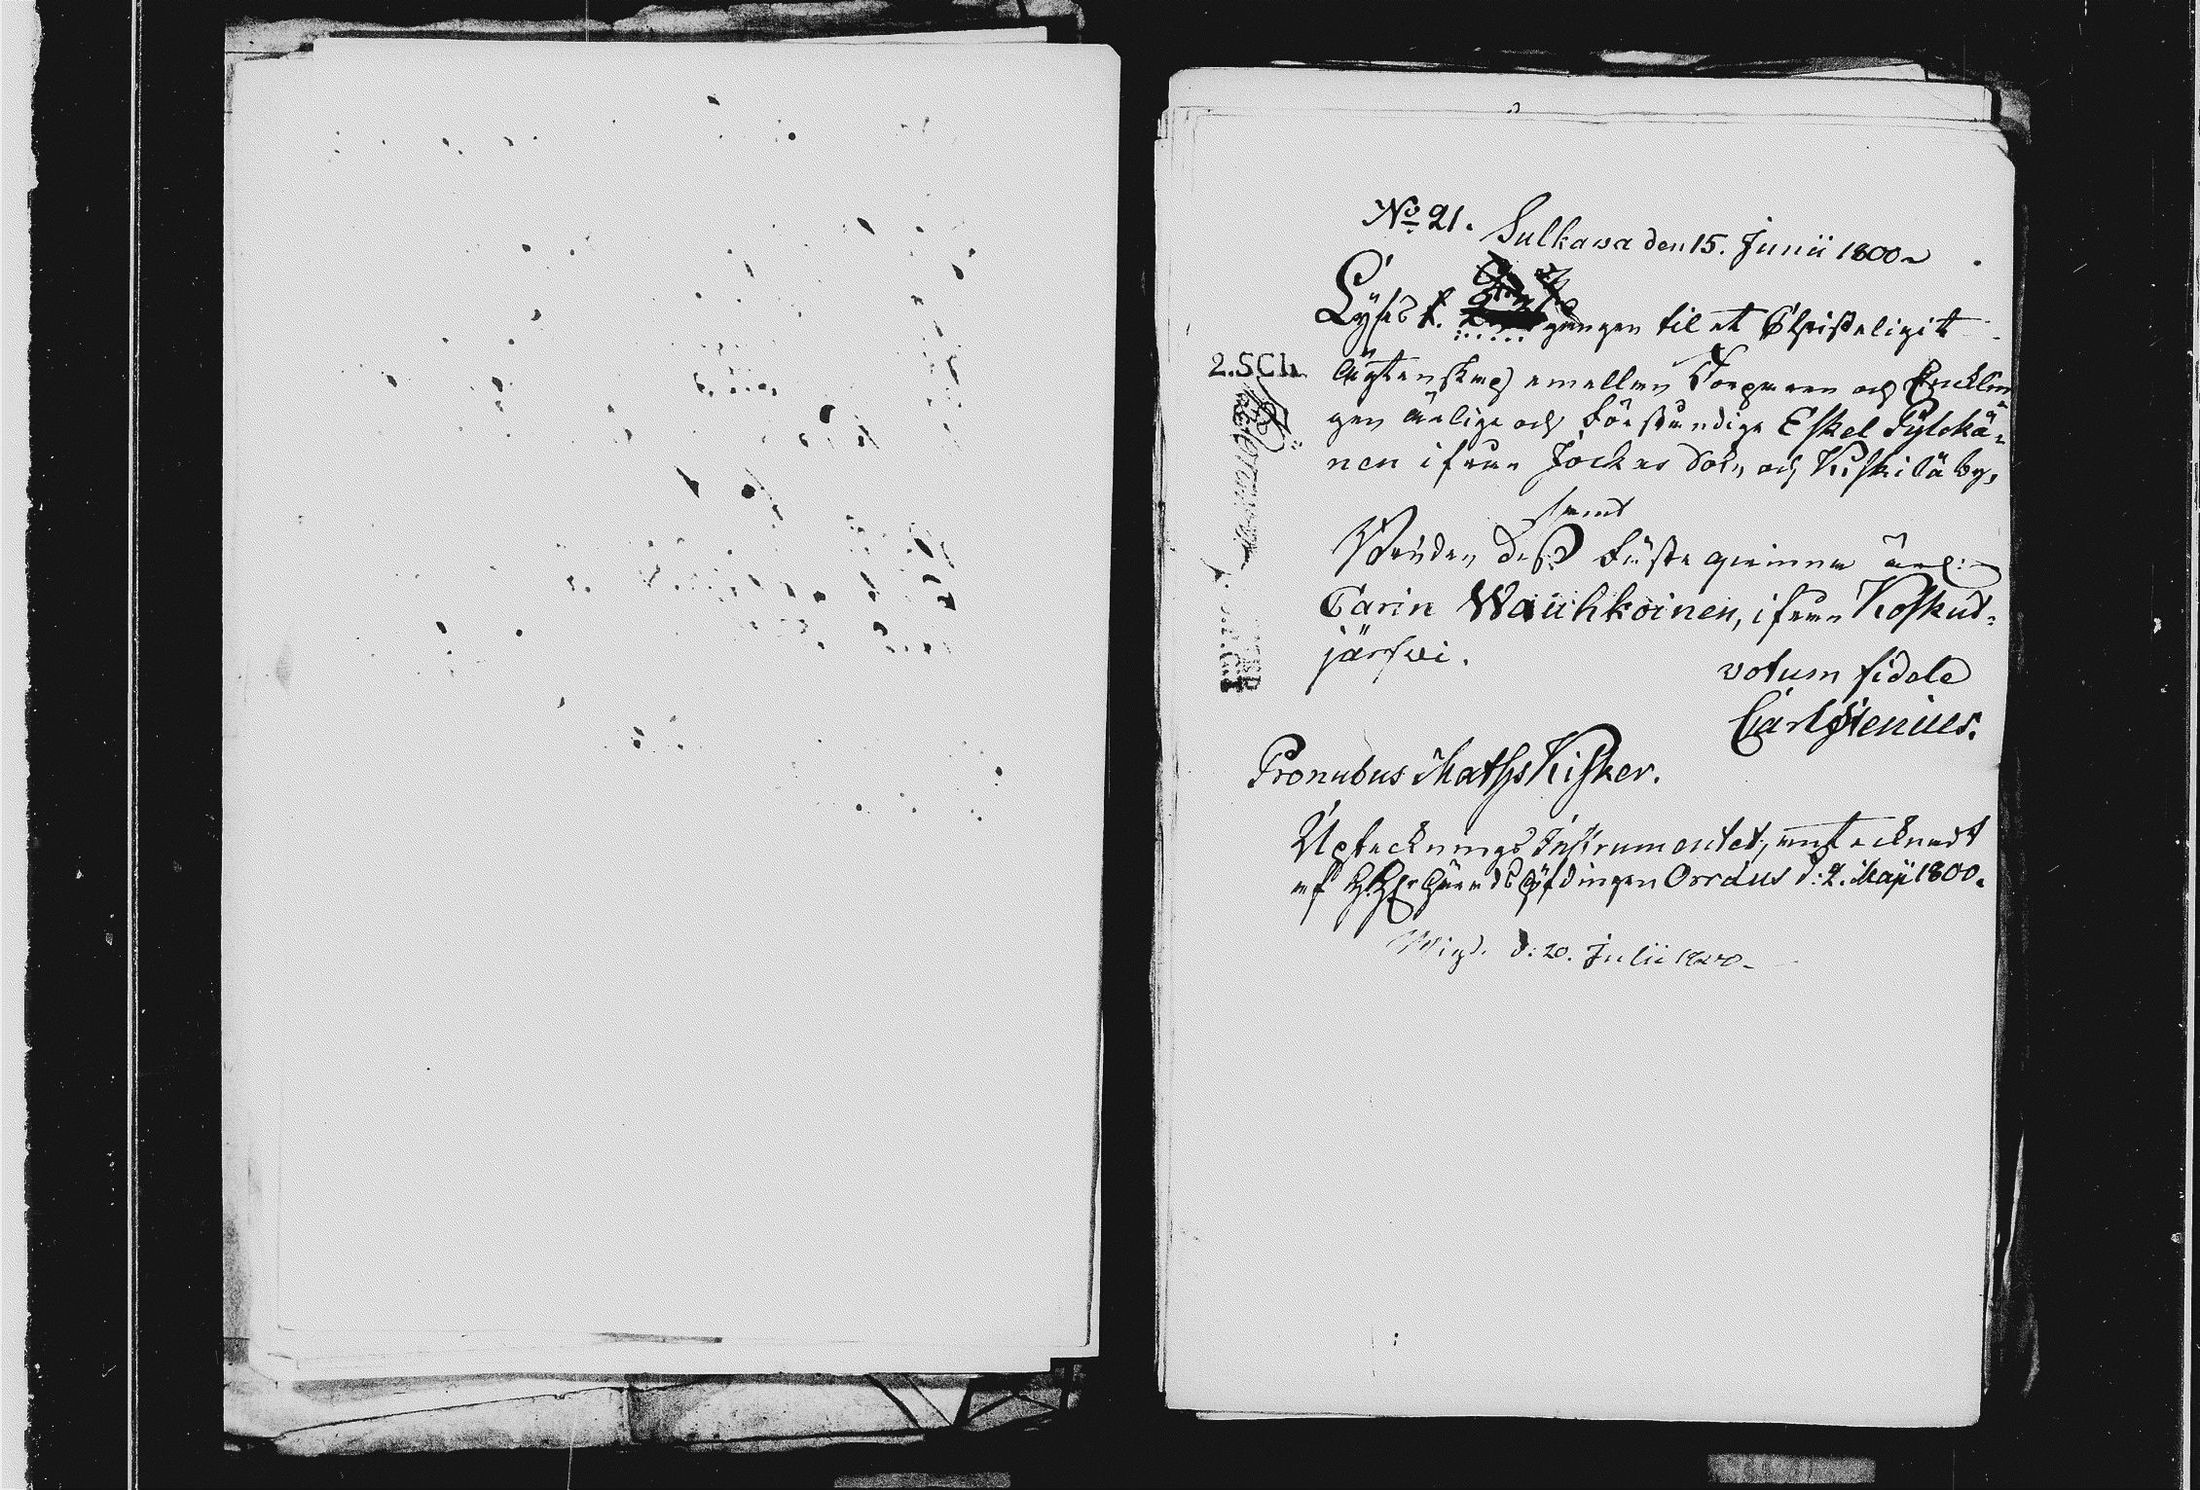 No 21. Sulkava den 15. Junii 1800
Lyses f. gången til et Christeligit
2.SCh.
Ägtenskap emellan Torparen och Encklin-
gen ärlige och Förståndige Eskel Pylckä-
nen ifrån Jockas Sokn och Kiskilä by,
samt
Bruden Dess Fästeqvinna ärl:
Carin Wauhkoinen, ifrån Koskut-
järfwi.
votum fidele
Carl Stenius.
Pronubus Maths Kisker.
Uptecknings Instrumentet, unteicknadt
af Häradshöfdingen Orræus d: 2. Maji 1800.
Wigd. d: 20. Julii 1800